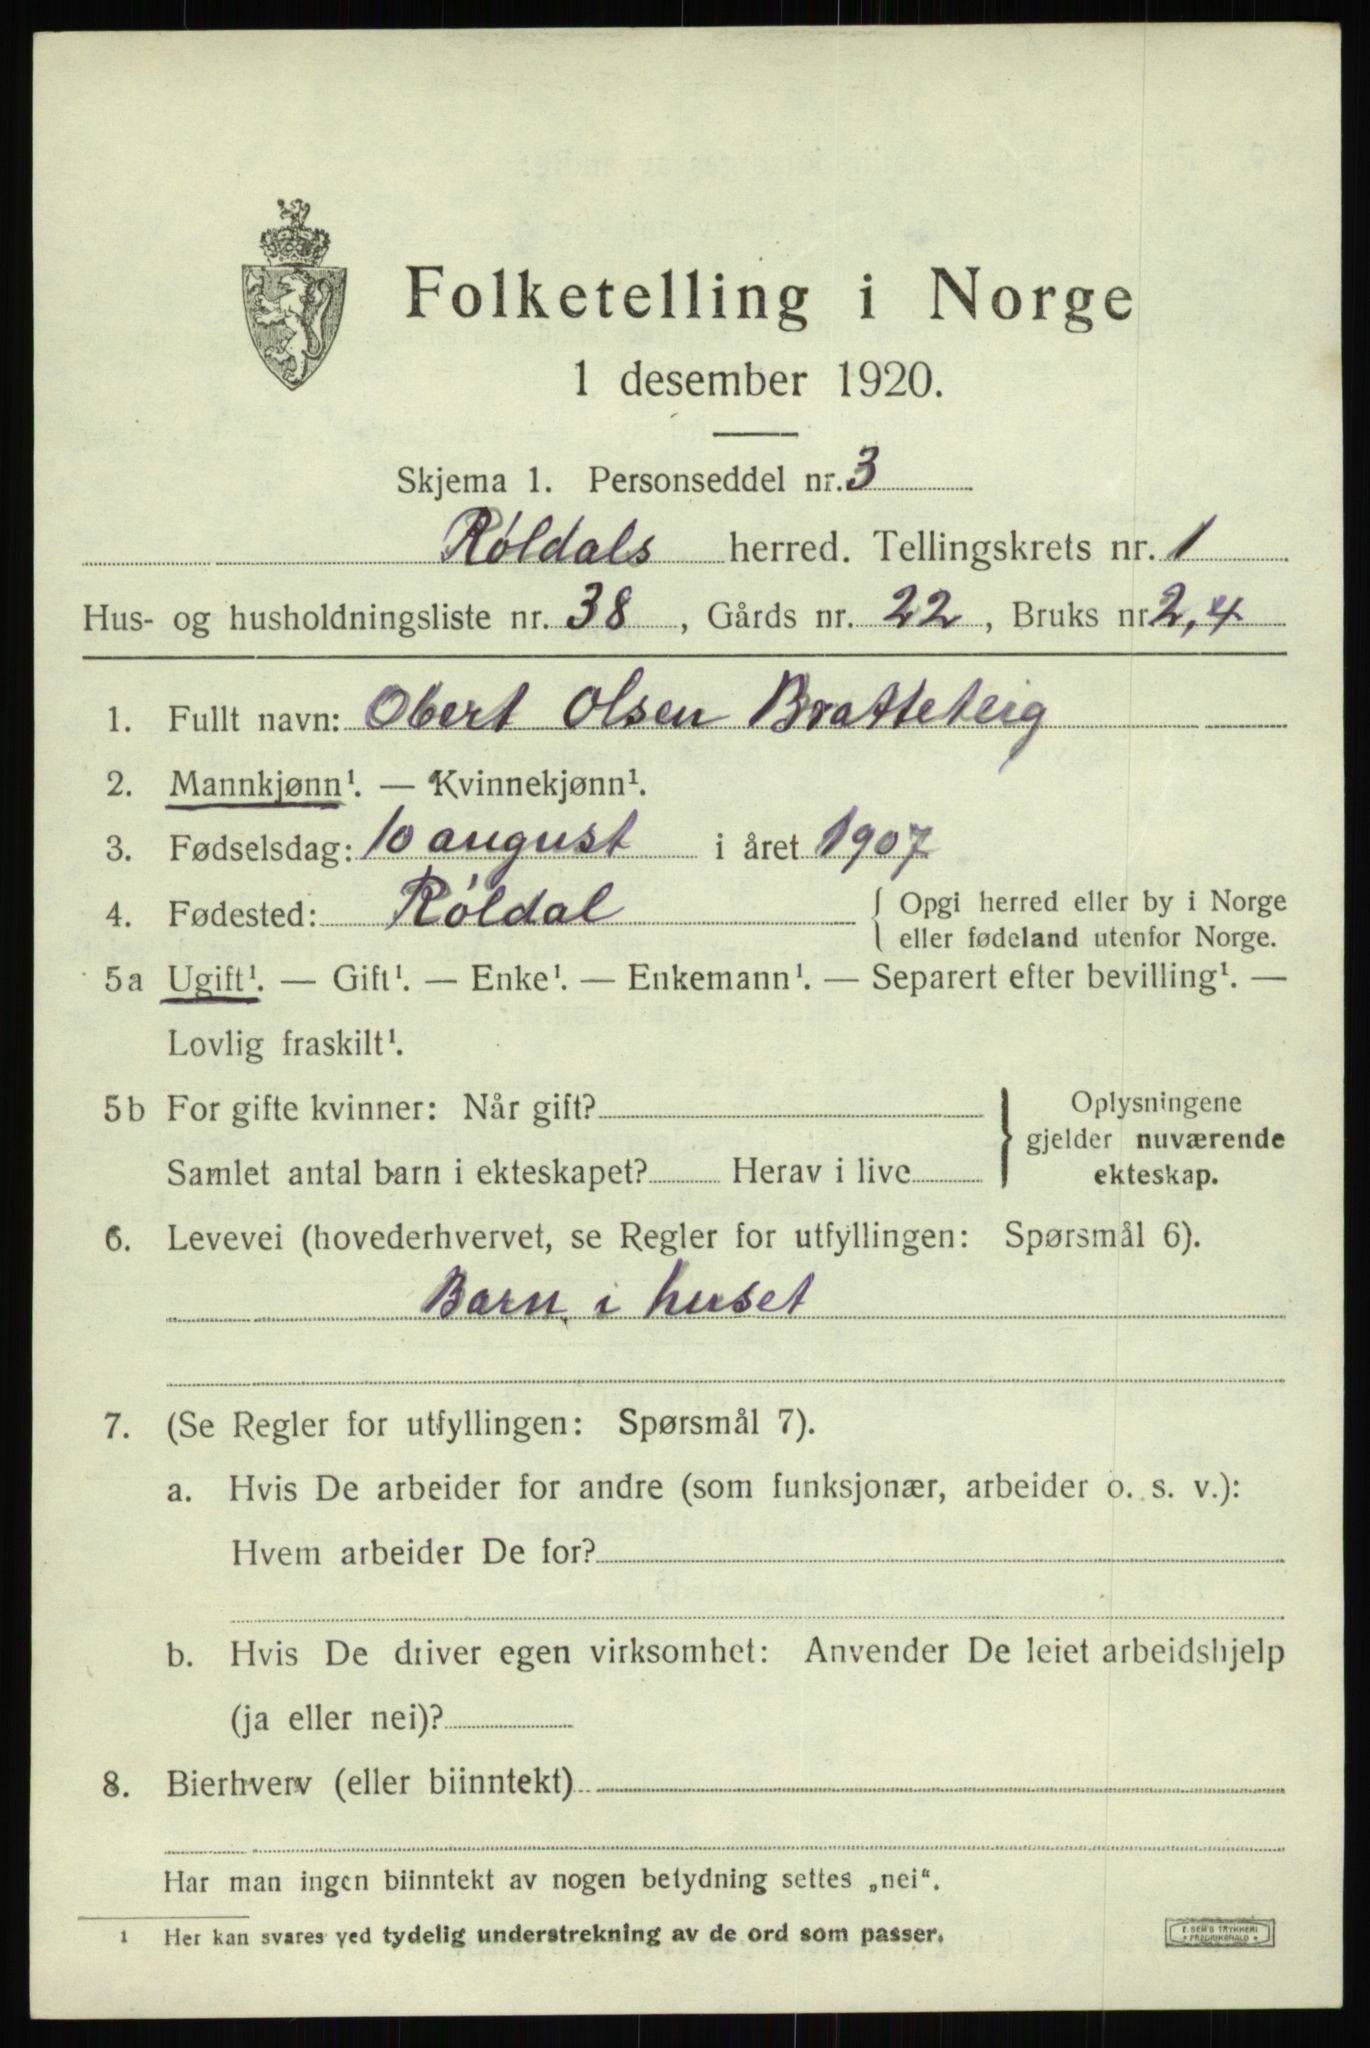 Folketelling i Norge
1 desember 1920.
Skjema 1. Personseddel nr. 3
Røldals herred. Tellingskrets nr. 1
Hus- og husholdningsliste nr. 38, Gårds nr. 22, Bruks nr 2,4
1. Fullt navn: Obert Olsen Bratteteig
2. Mannkjønn¹. — Kvinnekjønn¹.
3. Fødselsdag: 10 august i året 1907
4. Fødested: Røldal { Opgi herred eller by i Norge
eller fødeland utenfor Norge.
5a Ugift¹. — Gift¹. — Enke¹. — Enkemann¹. — Separert efter bevilling¹. —
Lovlig fraskilt¹.
5b For gifte kvinner: Når gift? } Oplysningene
gjelder nuværende
Samlet antal barn i ekteskapet? Herav i live
ekteskap.
6. Levevei (hovederhvervet, se Regler for utfyllingen: Spørsmål 6).
Barn i huset
7. (Se Regler for utfyllingen: Spørsmål 7).
a. Hvis De arbeider for andre (som funksjonær, arbeider o. s. v.):
Hvem arbeider De for?
b. Hvis De driver egen virksomhet: Anvender De leiet arbeidshjelp
(ja eller nei)?
8. Bierhverv (eller biinntekt)
Har man ingen biinntekt av nogen betydning settes „nei“.
1 Her kan svares ved tydelig understrekning av de ord som passer.
E. SEM'S TRYKKERI
FREDRIKSHALD